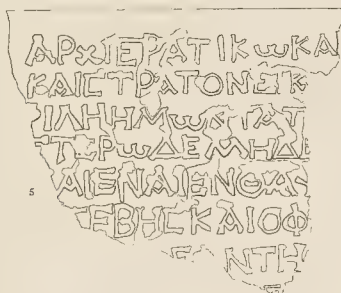 ΑΡΧΙΕΡΑΤΙΚωΚΑΙ
ΚΑΙCΤΡΑΤΟΝΕΙΚ
ΙΛΗΗΜωΝΤΑΤ
ΤΕΡωΔΕΜΗΔΕ
5 ΑΙΕΝΑΙΕΝΘΑC
ΕΒΗCΚΑΙΟΦ
ΝΤΗ